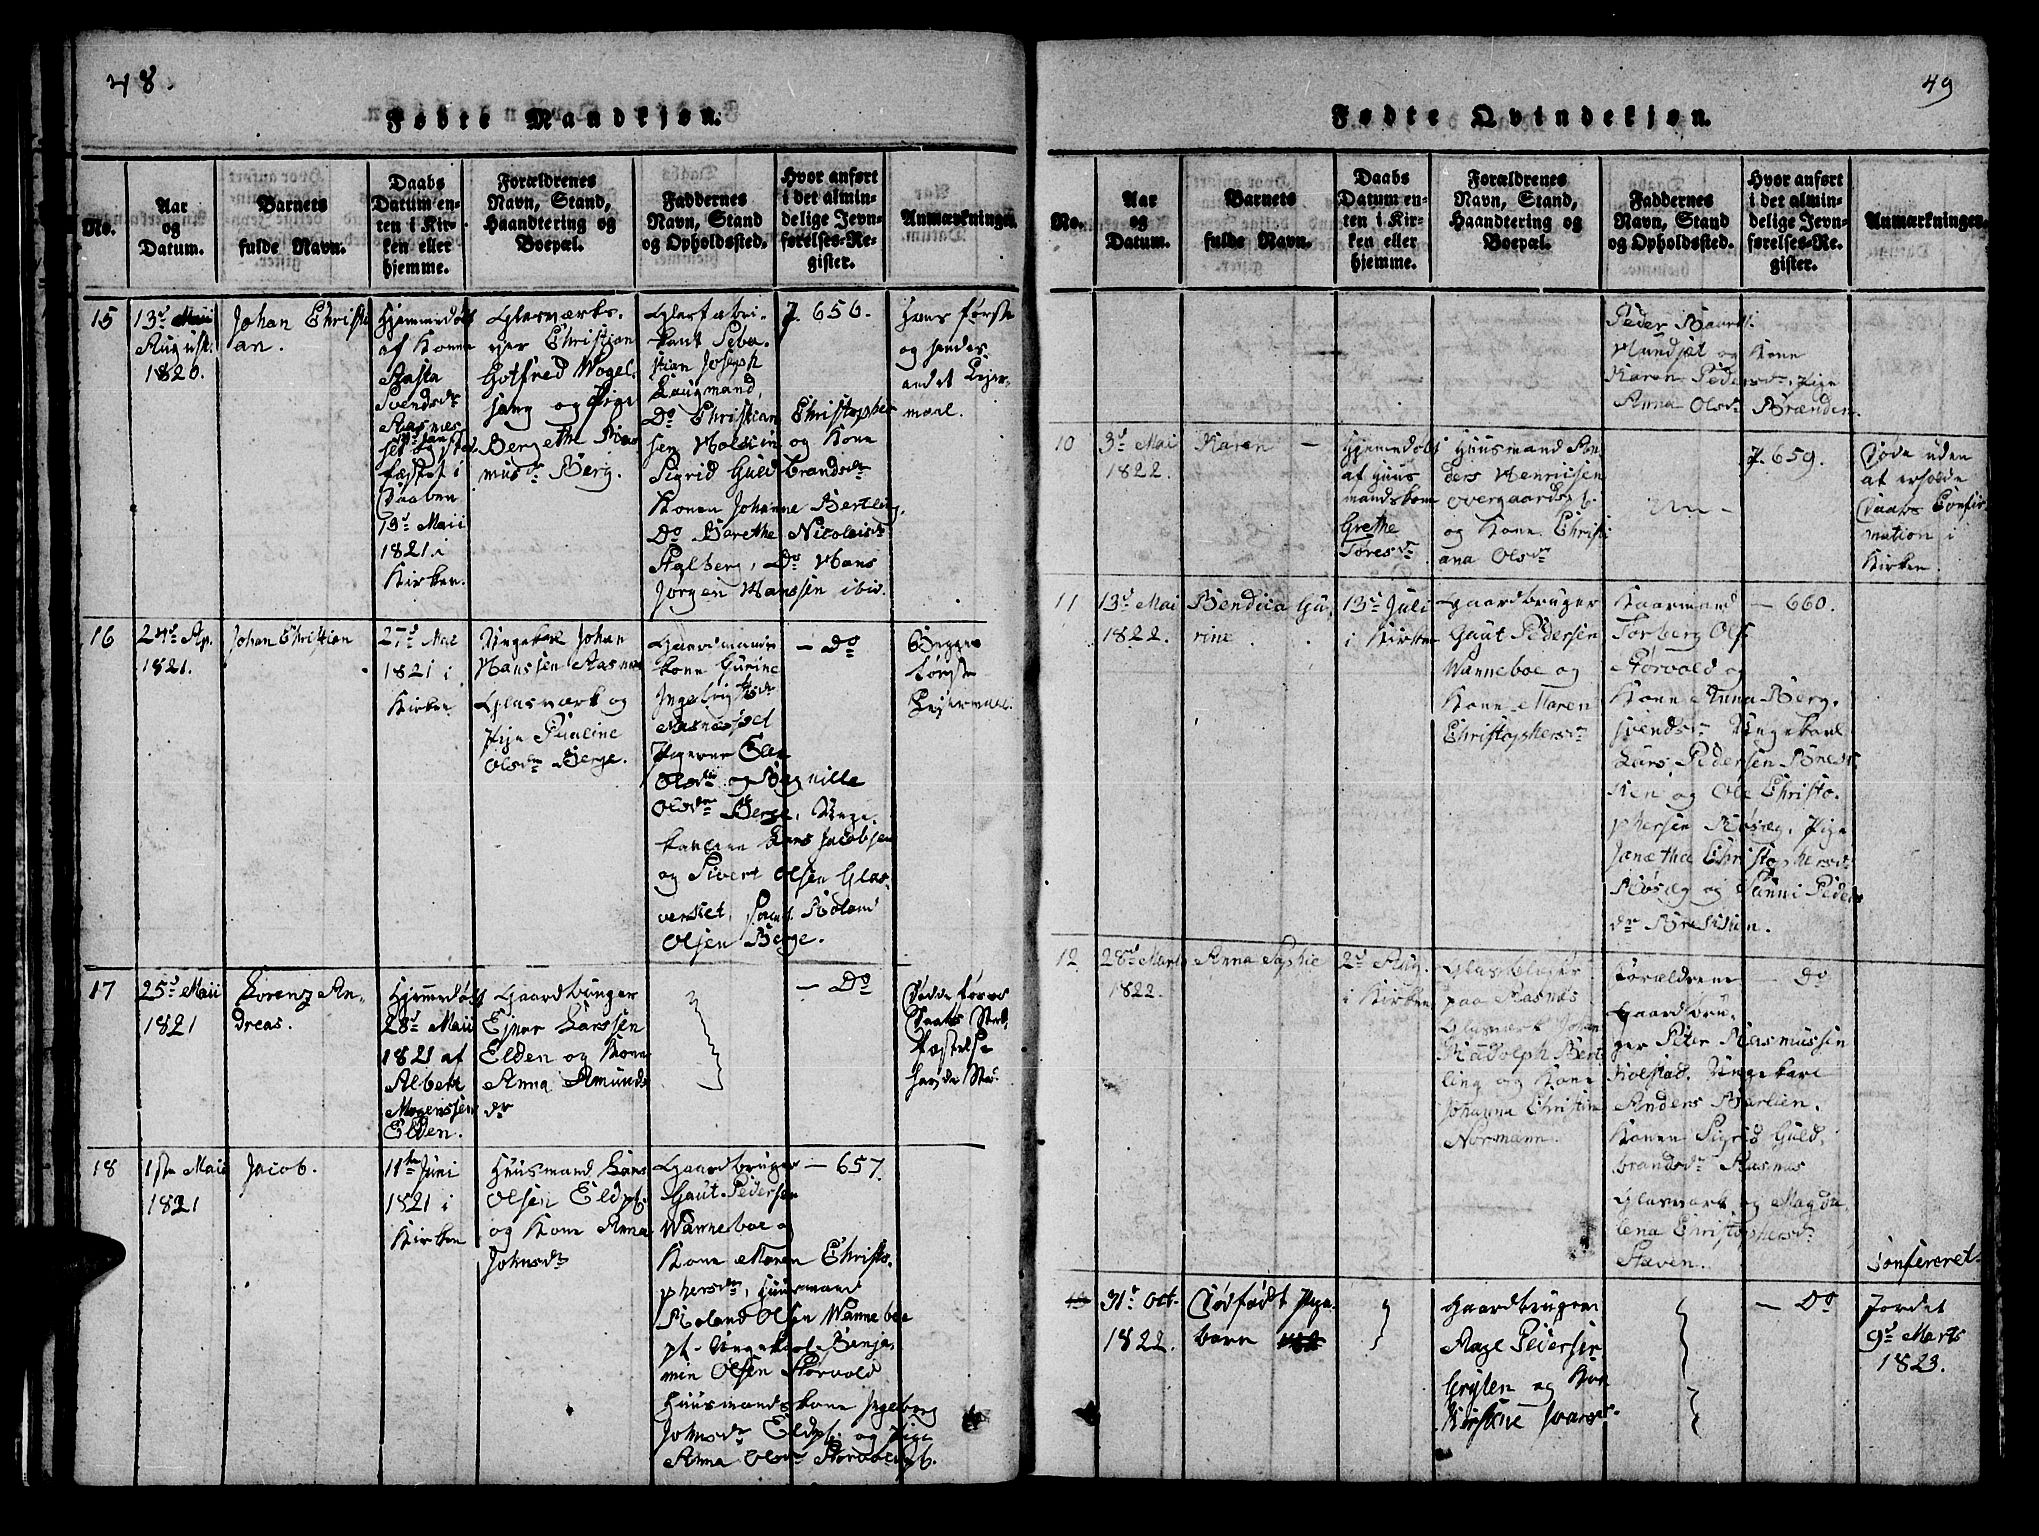 48.
Fødte Mandkjøn.
No.
Aar
og
Datum.
Barnets
fulde Navn.
Daabs
Datum en-
ten i Kir-
ken eller
hjemme.
Forældrenes
Navn, Stand,
Haandtering og
Boepæl.
Faddernes
Navn, Stand
og Opholdssted.
Hvor anført
i det almin-
delige Jevn-
førelses-Re-
gister.
Anmærkninger.
15
13de
August
1820.
Johan Christi
an.
Hjemmedøbt
af Kone
Aasta
Svendsdr
Aasnes
fæstet i
Daaben
13de Maii
1821 i
Kirken.
Glasværks-
ejer Christian
Gotfred Vogel-
sang og Pige
Bergethe Ras
musdr Berg.
Glasfabri-
kant Seba-
stian Joseph
Laugmand,
Do Christian Christopher
sen Holstin og Kone
Sigrid Guldbrandsdr
Konen Johanne Bertling,
Do Barethe Nicolaisdr
Aalberg, Do Hans
Jørgen Hanssen ibid.
7. 656.
Hans første
og hendes
andet Lejer-
maal.
16
24de Ap.
1821.
Johan Christian
27de Mai
1821 i
Kirken
Ungekarl Johan
Hanssen Aasnes
Glasværk og
Pige Pauline
Olsdr Berge.
Gaardmands
kone Gurine
Ingebrigtsdr
Aasnesset
Pigerne Elen
Olsdr og Bagnille
Olsdr Berge, Unge-
karlene Lars Jacobsen
og Sivert Olsen Glas-
verket, Roland
Olsen Berge.
— Do
Begges
første
Lejermaal.
17
25de Maii
1821
Lorenz An-
dreas.
Hjemmedøbt
28de Maii
1821 af
Albert
Mogenssen
Elden.
Gaardbruger
Ejner Larssen
Elden og Kone
Anna Amunds
dr
— Do
Døde førend
Daabs Stad-
fæstelse
havde Sted.
18
1ste Maii
1821
Jacob.
11te Juni
1821 i
Kirken
Huusmand Lars
Olsen Eldpl.
og Kone Anna
Johnsdr
Gaardbruger
Gaut Pedersen
Wanneboe og
Kone Maren Christo-
phersdr, Huusmand
Roland Olsen Wanneboe
pl. Ungekarl Benja-
min Olsen Størvold
Huusmandskone Ingeborg
Johnsdr Eldpl. og Pige
Anna Olsdr Størvoldpl.
— 657.
49
Fødte Qvindekjøn.
No.
Aar
og
Datum.
Barnets
fulde Navn.
Daabs
Datum en-
ten i Kir-
ken eller
hjemme.
Forældrenes
Navn, Stand,
Haandtering og
Boepæl.
Faddernes
Navn, Stand
og Opholdssted.
Hvor anført
i det almin-
delige Jevn-
førelses-Re-
gister.
Anmærkninger.
Peder
og Kone
Karen Pedersdr, Pige
Anna Olsdr Brænden.
10
3de Mai
1822.
Karen —
Hjemmedøbt
af Huus
mandskone
Grethe
Toresdr
Huusmand An
ders Henriksen
Overgaardspl.
og Kone Christi
ana Olsdr
7. 659.
Døde uden
at erholde
Daabs Confir
mation i
Kirken.
11
13de Mai
1822.
Bendica Gu-
rine
13de Juli
i Kirken
Gaardbruger
Gaut Pedersen
Wanneboe og
Kone Maren
Christophersdr
Kaarmand
Torberg Ols.
Størvold og
Kone Anna Berg-
svendsdr Ungekarl
Lars Pedersen Bredes-
ken og Ole Christo-
phersen Røsæg, Pige
Janetha Christophersdr
Røsæg og Hanni Peders
dr Bredesken.
— 660.
12
28de Marts
1822.
Anna Sophie
2de Aug.
i Kirken
Glasblæser
paa Aasnes
Glasværk Johan
Radolph Bert
ling og Kone
Johanna Christine
Normann.
Forældrene
Gaardbru-
ger Peter Rasmussen
Holstad. Ungekarl
Anders Barlien.
Konen Sigrid Guld-
brandsdr Aasnes
Glasværk og Magda
lena Christophersdr
Staven.
— Do
31te Oct.
1822.
Dødfødt Pige-
barn
Gaardbrugeren
Aage Pedersen
Gryten og Kone
Kirstine Ivarsdr.
— Do
Confereret.
Jordet
9de Marts
1823.